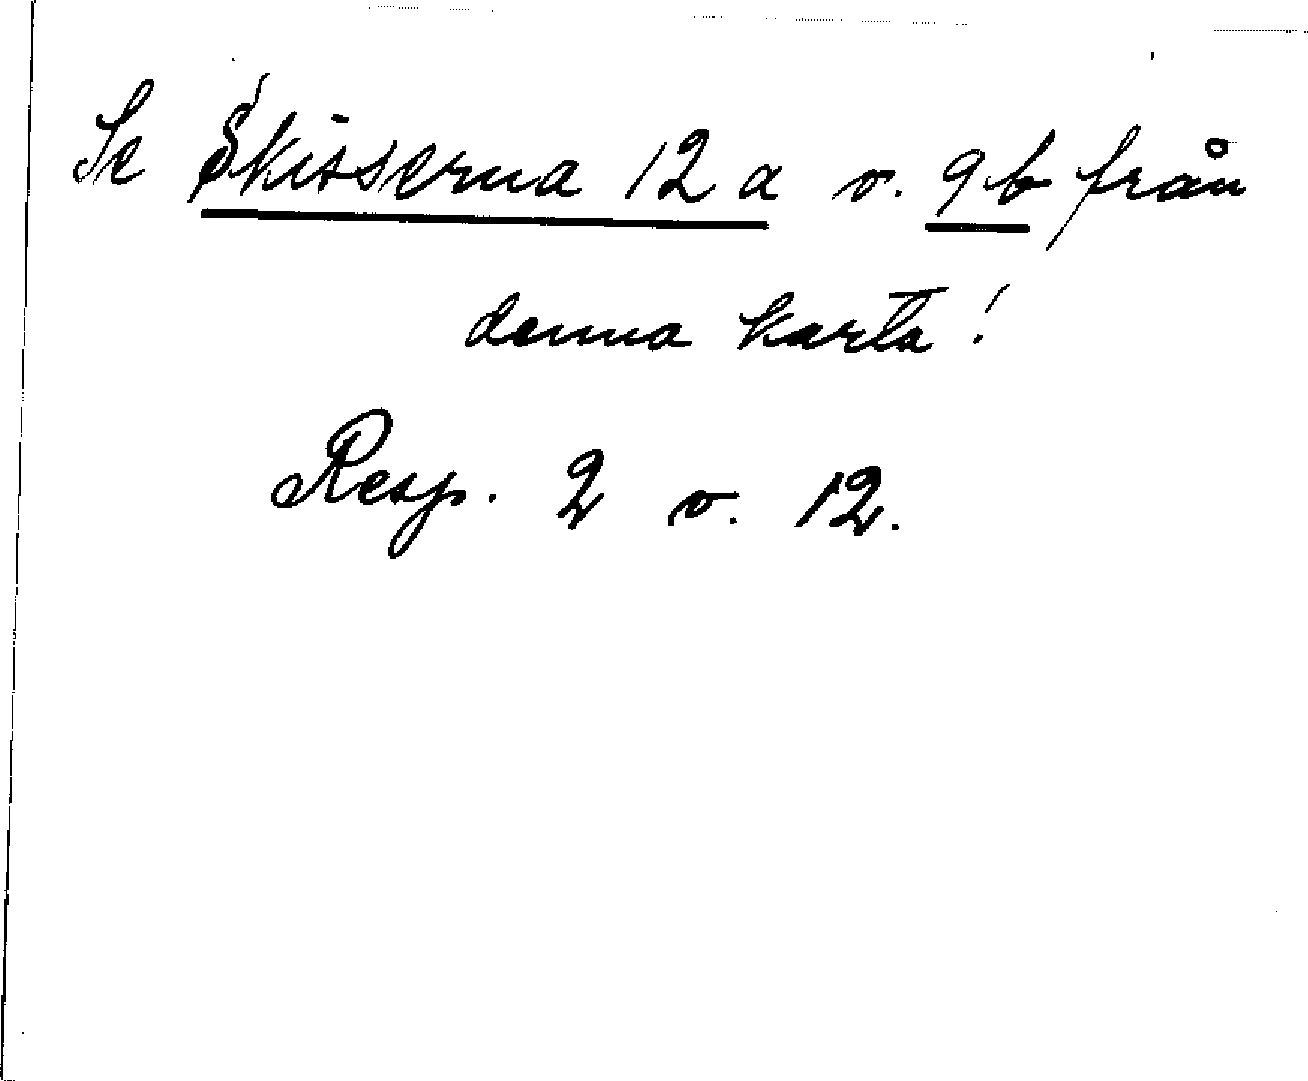 Se Skisserna 12 a o. 9 b från
denna karta!
Resp. 2 o. 12.